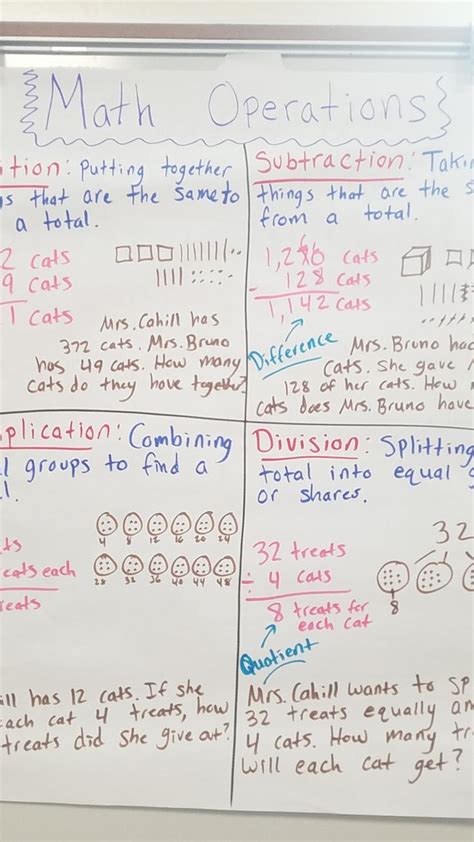 Math Operations
ition: Putting together
gs that are the same to
a total.
2 cats
9 cats
1 cats
Mrs. Cahill has
372 cats. Mrs. Bruno
has 49 cats. How many
cats do they have together?
Subtraction: Takin
things that are the s
from a total.
cats
- 128 cats
1,142 cats
Difference
Mrs. Bruno had
cats. She gave
128 of her cats. How
cats does Mrs. Bruno have
plication: Combining
l groups to find a
l.
ts
cats each
reats
4 8 12 16 20 24
28 32 36 40 44 48
ill has 12 cats. If she
each cat 4 treats, how
treats did she give out?
Division: Splitting
total into equal g
or shares.
32 treats
÷ 4 cats
8 treats for
each cat
Quotient
32
8
Mrs. Cahill wants to sp
32 treats equally an
4 cats. How many tr
will each cat get?